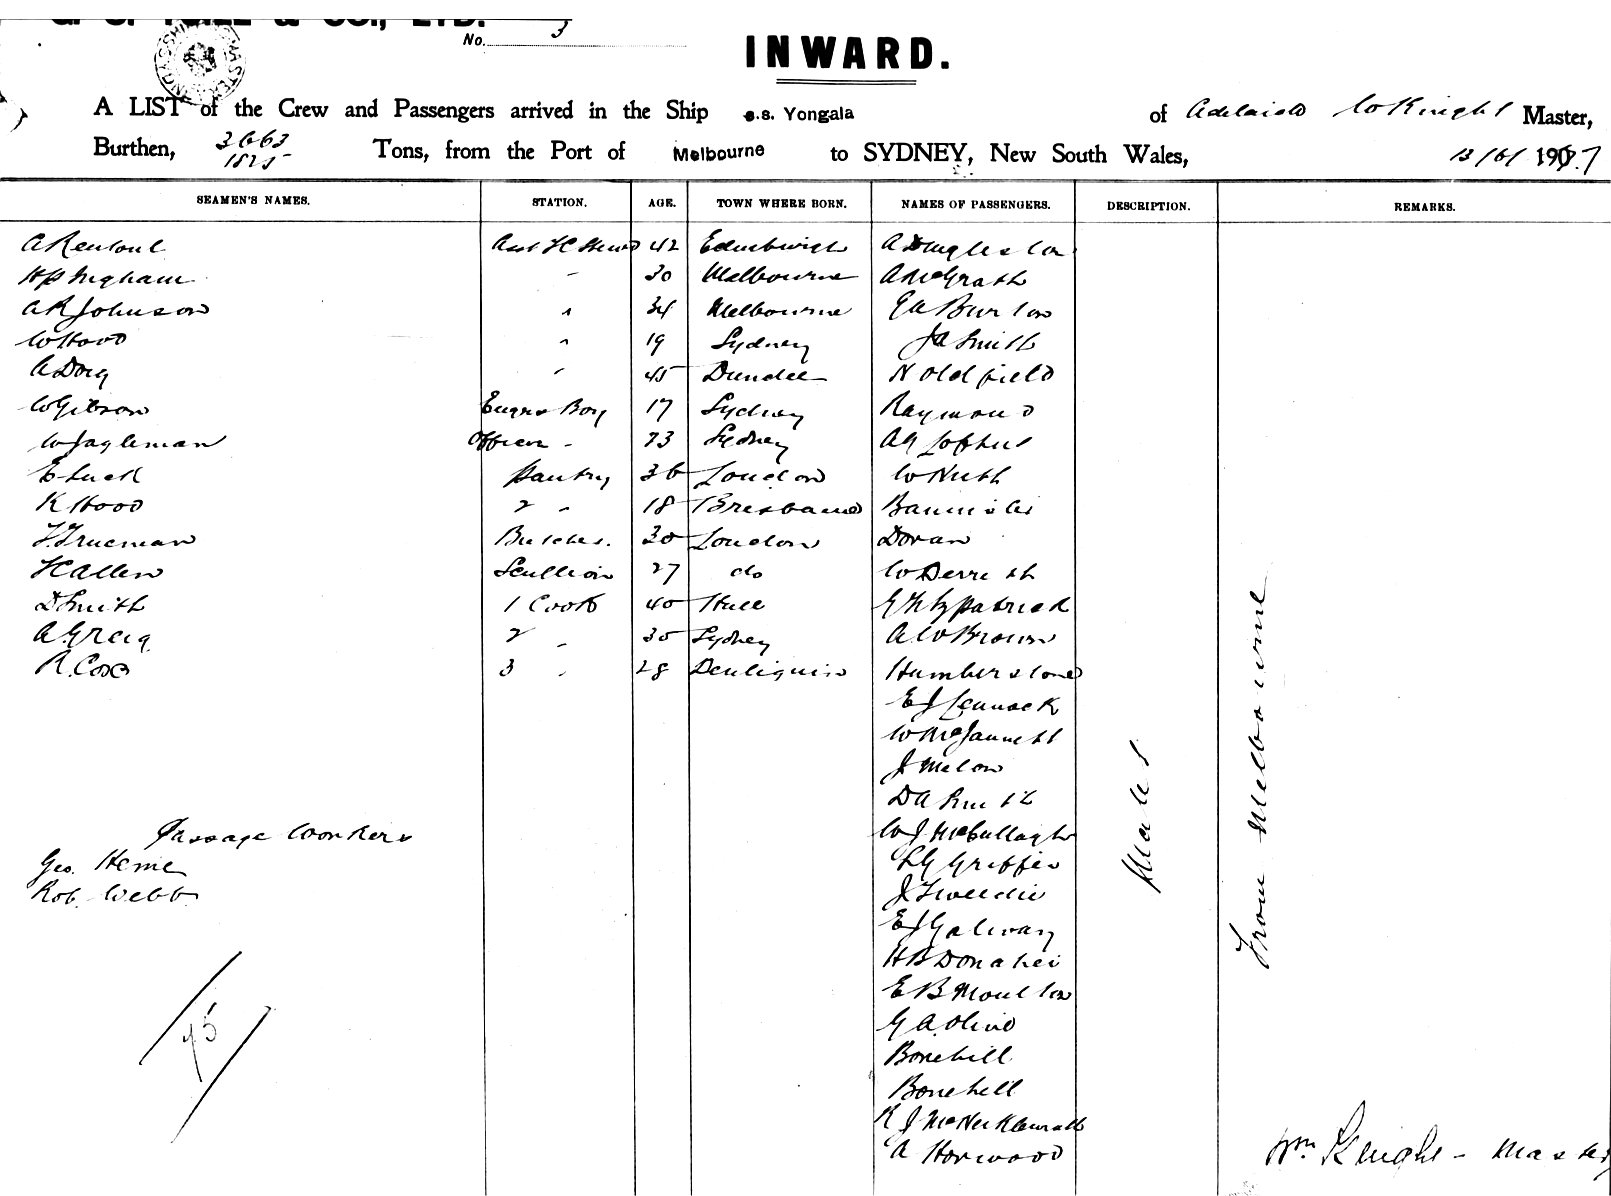 No. 3
INWARD.
A LIST of the Crew and Passengers arrived in the Ship s.s. Yongala of Adelaide W Knight Master,
Burthen, 3663 1825 Tons, from the Port of Melbourne to SYDNEY, New South Wales, 13/6/ 1907
SEAMEN'S NAMES. STATION. AGE. TOWN WHERE BORN. NAMES OF PASSENGERS. DESCRIPTION. REMARKS.
A Rentoul Asst 42 Edinburgh A
H P Ingham " 30 Melbourne A McGrath
A R Johnson " 34 Melbourne E A Burton
W Hood " 19 Sydney J A Smith
A Doig " 45 Dundee N Oldfield
W Gibson Engrs Boy 17 Sydney Raymond
W Officers " 23 Sydney A G Loftus
E Luck Pantry 36 London W Nuth
K Hood 2 " 18 Brisbane Bannister
F Trueman Butcher. 30 London Doran
H Allen Scullion 27 do W
D Smith 1 Cook 40 Hull G Fitzpatrick
A Greig 2 " 30 Sydney A W Brown
R. Cox 3 " 28 Deniliquin Humberstone
E J
W McJannett
J Melon
D A Smith
Passage Workers W J McCullagh
Geo. Heme L G Griffin
Rob. Webb J Tweedie
E J Galway
H B Donahei
E B Moulton
45 G A Olive
Bonehill
Bonehill
R J
A Horwood
Males
From Melbourne
Wm. Knight - Master